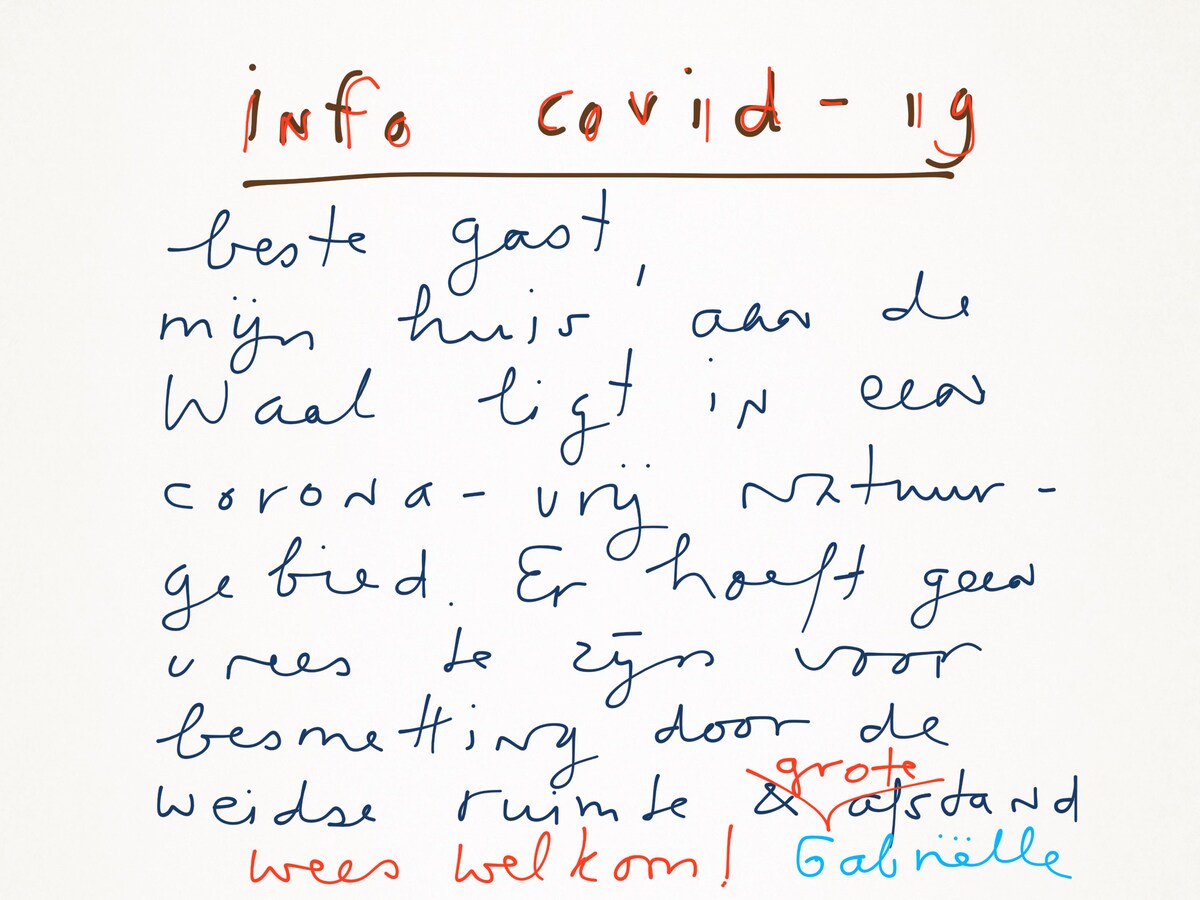 info covid-19
beste gast,
mijn huis aan de
Waal ligt in een
corona-vrij natuur-
gebied. Er hoeft geen
vrees te zijn voor
besmetting door de
grote
weidse ruimte & afstand
wees welkom! Gabriëlle